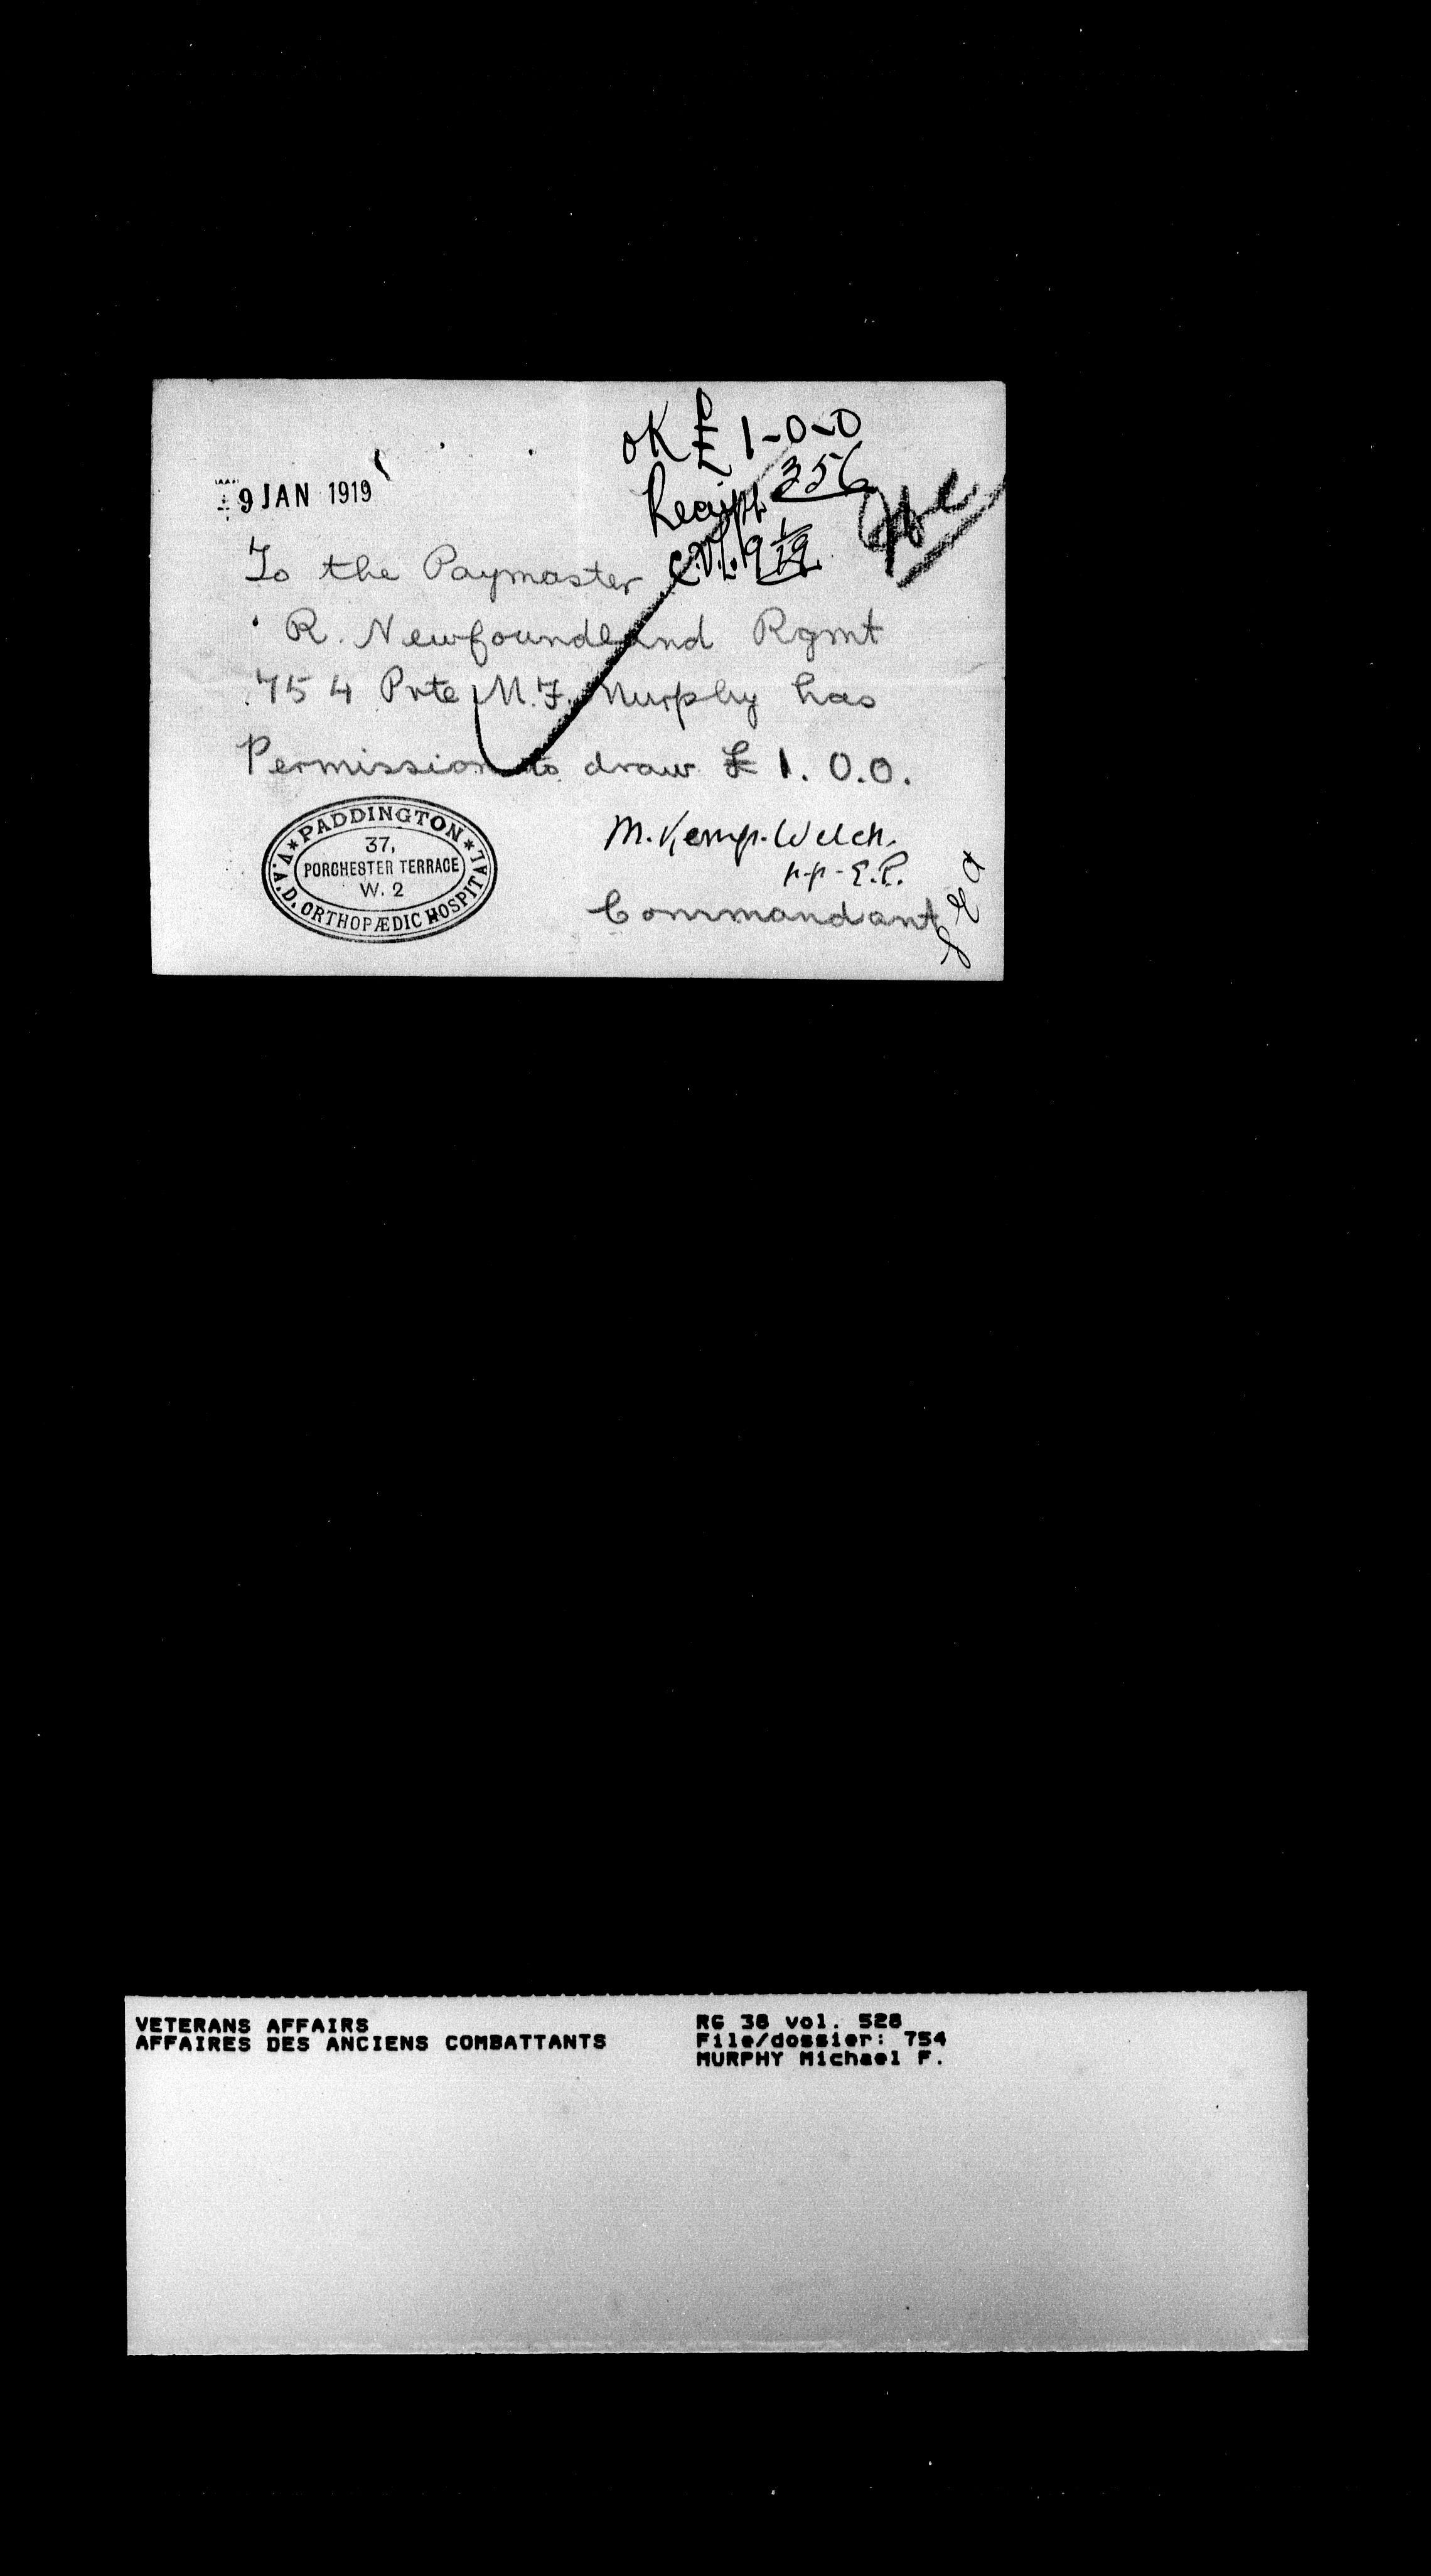 OK £ 1-0-0
Receipt 356
9 JAN 1919
C.V.L. 9/1/19
To the Paymaster
R. Newfoundland Rgmt
754 Prte M.F. Murphy has
Permission to draw £ 1. 0. 0.
M. Kemp-Welch.
p.p. E.P.
Commandant
PADDINGTON
V.A.D. ORTHOPÆDIC HOSPITAL
37,
PORCHESTER TERRACE
W. 2
VETERANS AFFAIRS
AFFAIRES DES ANCIENS COMBATTANTS
RG 38 vol. 528
File/dossier: 754
MURPHY Michael F.